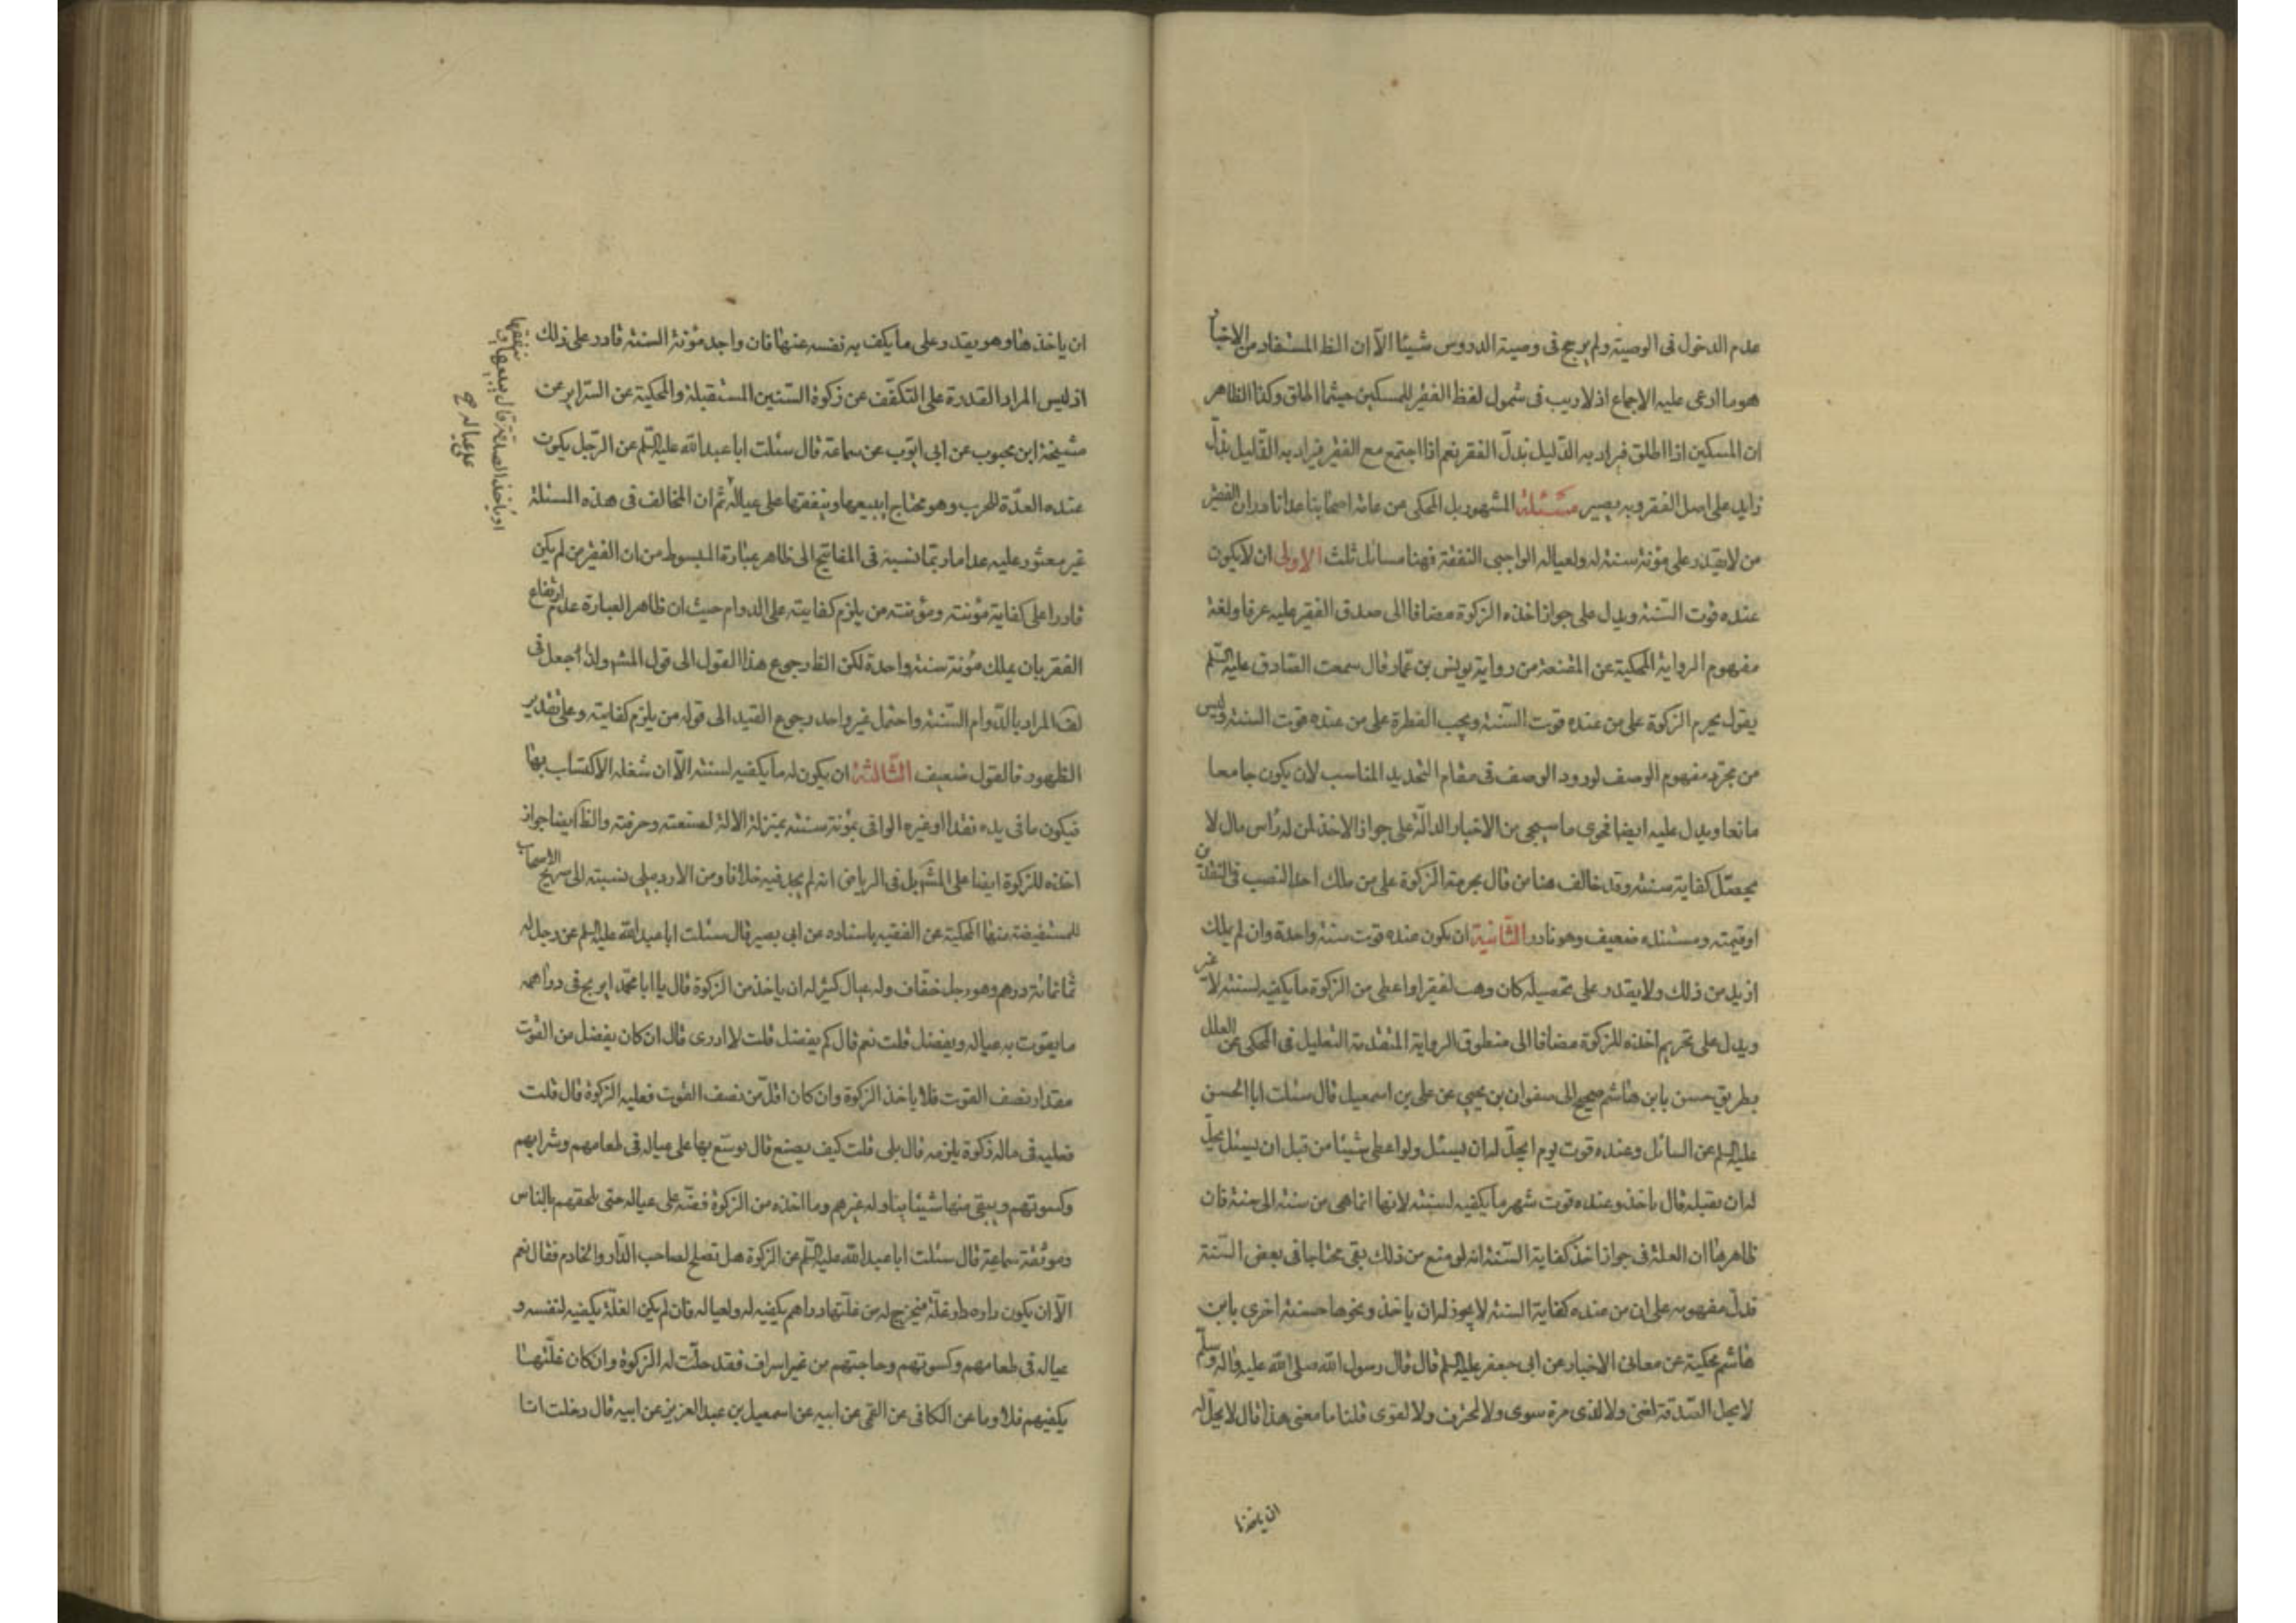 عدم الدخول فى الوصية ولم يرجح فى وصية الدروس شيئا الا ان الظ المستفاد من الاخبار
هو ما ادعى عليه الاجماع اذ لا ريب فى شمول لفظ الفقير للمسكين حيثما اطلق وكذا الظاهر
ان المسكين اذا اطلق فيراد به الذليل بذل الفقر نعم اذا اجتمع مع الفقير فيراد به الذليل بذل
زايد على اصل الفقر وبه يصير مسئلة المشهور بل المحكى من عامة اصحابنا عدا نادر ان الفقير
من لا يقدر على مؤنة سنته له ولعياله الواجبى النفقة فهنا مسائل ثلث الاولى ان لا يكون
عنده قوت السنة ويدل على جواز اخذه الزكوة مضافا الى صدق الفقير عليه عرفا ولغة
مفهوم الرواية المحكية عن المقنعة من رواية يونس بن عمار قال سمعت الصادق عليه السلم
يقول يحرم الزكوة على من عنده قوت السنة ويجب الفطرة على من عنده قوت السنة وليس
من مجرد مفهوم الوصف لورود الوصف فى مقام التحديد المناسب لان يكون جامعا
مانعا ويدل عليه ايضا فحوى ما سيجى من الاخبار الدالة على جواز الاخذ لمن له رأس مال لا
يحصل كفاية سنته وقد خالف هنا من قال بحرمة الزكوة على من ملك احد النصب من النقدين
او قيمته ومستنده ضعيف وهو نادر الثانية ان يكون عنده قوت سنة واحدة وان لم يملك
ازيد من ذلك ولا يقدر على تحصيله كان وهب لفقير او اعطى من الزكوة ما يكفيه لسنته لا غير
ويدل على تحريم اخذه للزكوة مضافا الى منطوق الرواية المتقدمة التعليل فى المحكى عن العلل
بطريق حسن بابن هاشم صحيح الى صفوان بن يحيى عن على بن اسمعيل قال سئلت ابا الحسن
عليه السلم عن السائل وعنده قوت يوم ايحل له ان يسئل ولو اعطى شيئا من قبل ان يسئل يحل
له ان يقبله قال ياخذ وعنده قوت شهر ما يكفيه لسنته لانها انما هى من سنة الى سنة فان
ظاهرها ان العلة فى جواز اخذ كفاية السنة انه لو منع من ذلك بقى محتاجا فى بعض السنة
فدل مفهومه على ان من عنده كفاية السنة لا يجوز له ان ياخذ ونحوها حسنة اخرى بابن
هاشم محكية عن معانى الاخبار عن ابى جعفر عليه السلم قال قال رسول الله صلى الله عليه واله وسلم
لا يحل الصدقة لغنى ولا لذى مرة سوى ولا لمحترف ولا لقوى قلنا ما معنى هذا قال لا يحل له
ان ياخذها
ان ياخذها وهو يقدر على ما يكف به نفسه عنها فان واجد مؤنة السنة قادر على ذلك
اذ ليس المراد القدرة على التكفف عن زكوة السنين المستقبلة والمحكية عن السراير عن
مشيخة ابن محبوب عن ابى ايوب عن سماعة قال سئلت ابا عبد الله عليه السلم عن الرجل يكون
عنده العدة للحرب وهو محتاج ايبيعها وينفقها على عياله ثم ان المخالف فى هذه المسئلة
او ياخذ الصدقة قال يبيعها و
ينفقها
على عياله صح
غير معثور عليه عدا ما ربما نسبه فى المفاتيح الى ظاهر عبارة المبسوط من ان الفقير من لم يكن
قادرا على كفاية مؤنته ومؤنة من يلزم كفايته على الدوام حيث ان ظاهر العبارة عدم ارتفاع
الفقر بان يملك مؤنة سنة واحدة لكن الظ رجوع هذا القول الى قول المش ولذا جعل فى
لف المراد بالدوام السنة واحتمل غير واحد رجوع القيد الى قوله من يلزم كفايته وعلى تقدير
الظهور فالقول ضعيف الثالثة ان يكون له ما يكفيه لسنته الا ان شغله الاكتساب بها
فيكون ما فى يده نقدا او غيره الوافى بمؤنة سنته بمنزلة الالة لصنعته وحرفته والظ ايضا جواز
اخذه للزكوة ايضا على المش بل فى الرياض انه لم يجد فيه خلافا ومن الاردبيلى نسبته الى صريح الاصحاب
للمستفيضة منها المحكية عن الفقيه باسناده عن ابى بصير قال سئلت ابا عبد الله عليه السلم عن رجل له
ثمانمائة درهم وهو رجل خفاف وله عيال كثير له ان ياخذ من الزكوة قال يا ابا محمد ايربح فى دراهمه
ما يقوت به عياله ويفضل قلت نعم قال كم يفضل قلت لا ادرى قال ان كان يفضل من القوت
مقدار نصف القوت فلا ياخذ الزكوة وان كان اقل من نصف القوت فعليه الزكوة قال قلت
فعليه فى ماله زكوة يلزمه قال بلى قلت كيف يصنع قال يوسع بها على عياله فى طعامهم وشرابهم
وكسوتهم ويبقى منها شيئا يناوله غيرهم وما اخذه من الزكوة فضه على عياله حتى يلحقهم بالناس
وموثقة سماعة قال سئلت ابا عبد الله عليه السلم عن الزكوة هل تصلح لصاحب الدار والخادم فقال نعم
الا ان يكون داره دار غلة فيخرج له من غلتها دراهم يكفيه له ولعياله فان لم يكن الغلة يكفيه لنفسه و
عياله فى طعامهم وكسوتهم وحاجتهم من غير اسراف فقد حلت له الزكوة وان كان غلتها
يكفيهم فلا وما عن الكافى عن القمى عن ابيه عن اسمعيل بن عبد العزيز عن ابيه قال دخلت انا